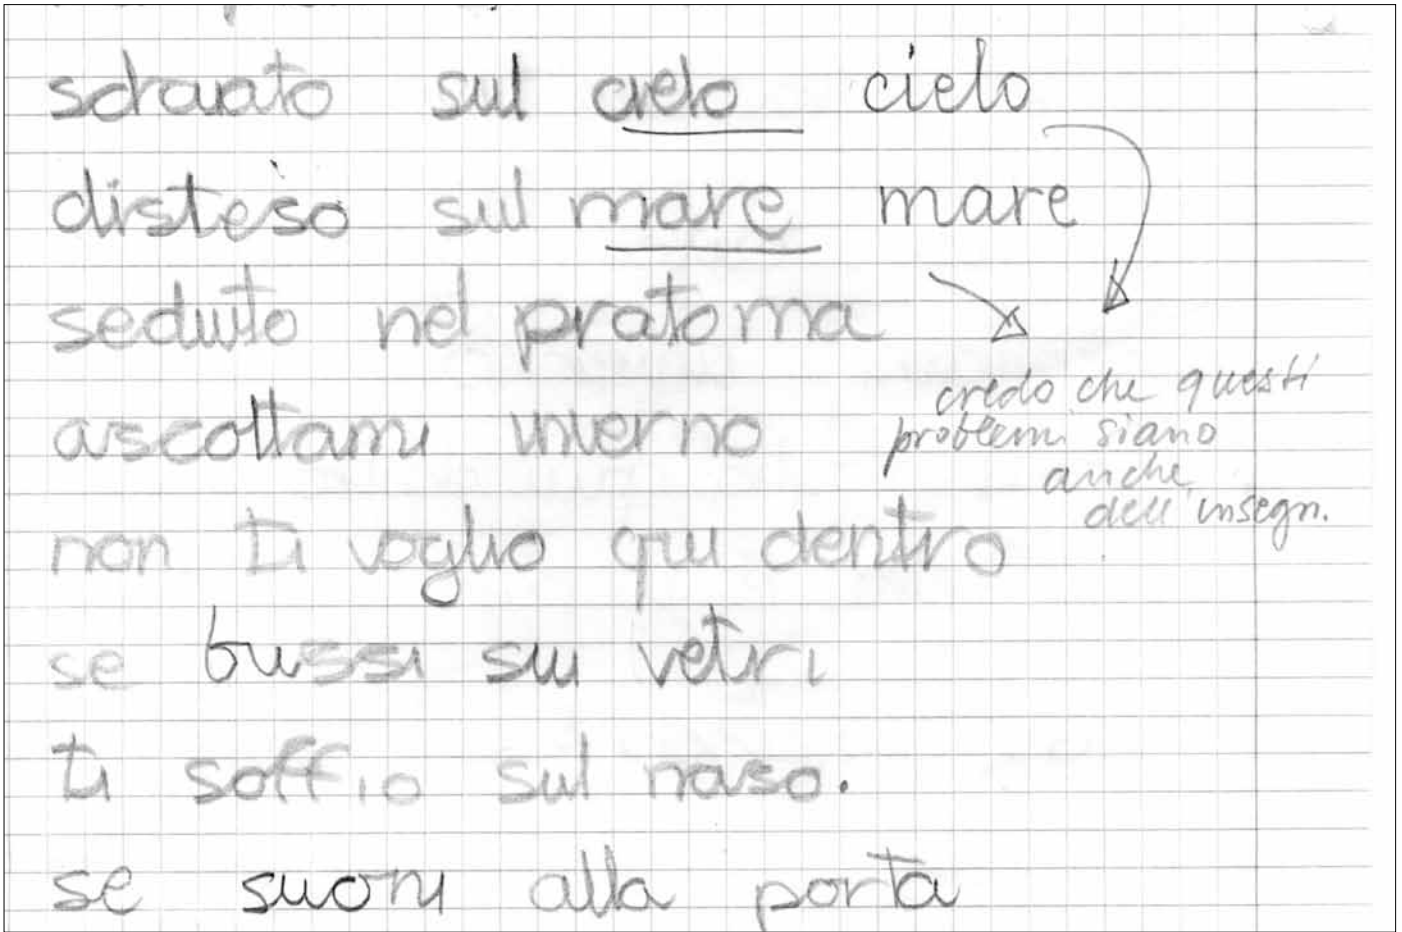 sdraiato sul cielo cielo
disteso sul mare mare
seduto nel prato ma
ascoltami inverno
credo che questi
problemi siano
anche
dell'insegn.
non ti voglio qui dentro
se bussi sui vetri
ti soffio sul naso.
se suoni alla porta